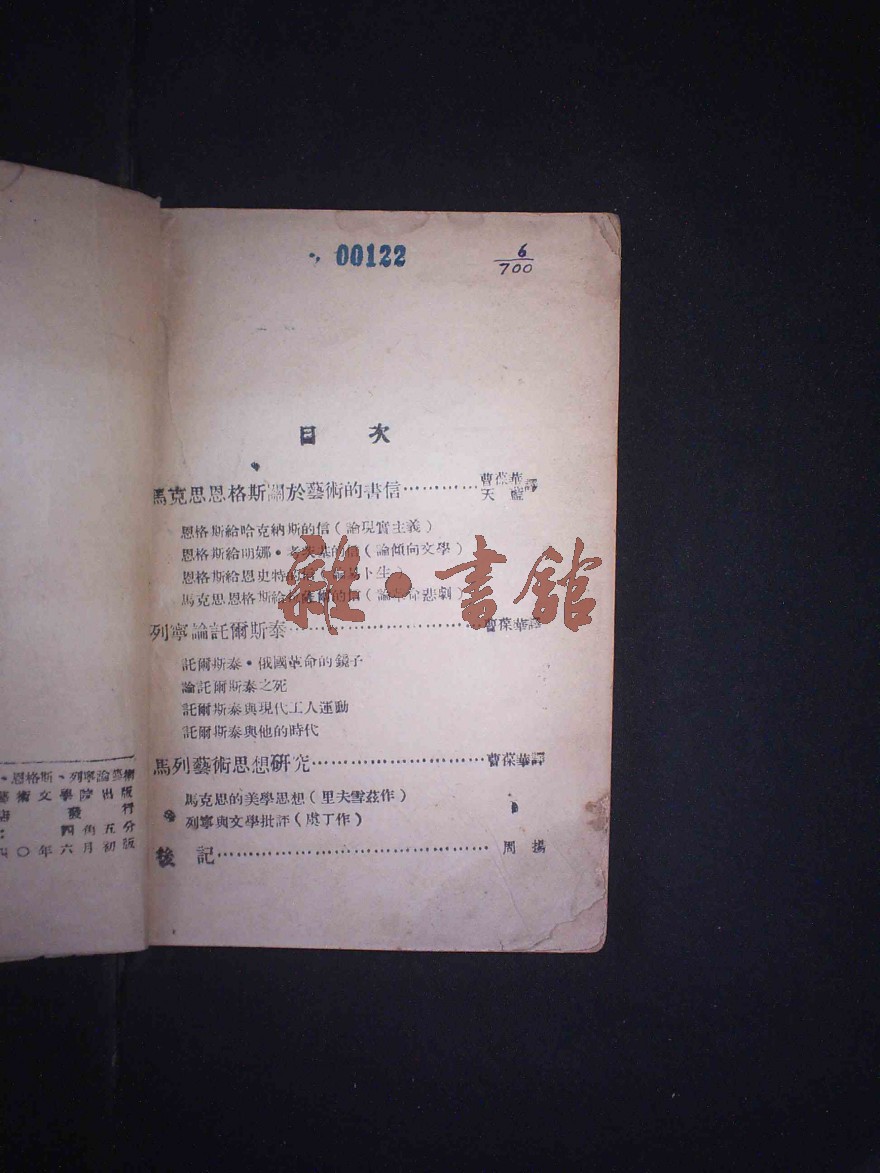 ・恩格斯・列寧論藝術
藝術文學院出版
店發行
四角五分
四〇年六月初版
00122
6
700
目次
馬克思恩格斯關於藝術的書信…………曹葆華 天藍 譯
恩格斯給哈克納斯的信(論現實主義)
恩格斯給明娜・考茨基的信(論傾向文學)
恩格斯給恩史特的信(論易卜生)
馬克思恩格斯給拉薩爾的信(論革命悲劇)
列寧論託爾斯泰…………………………曹葆華譯
託爾斯泰・俄國革命的鏡子
論託爾斯泰之死
託爾斯泰與現代工人運動
託爾斯泰與他的時代
馬列藝術思想研究………………………曹葆華譯
馬克思的美學思想(里夫雪茲作)
列寧與文學批評(虞丁作)
後記……………………………………周揚
雜・書館